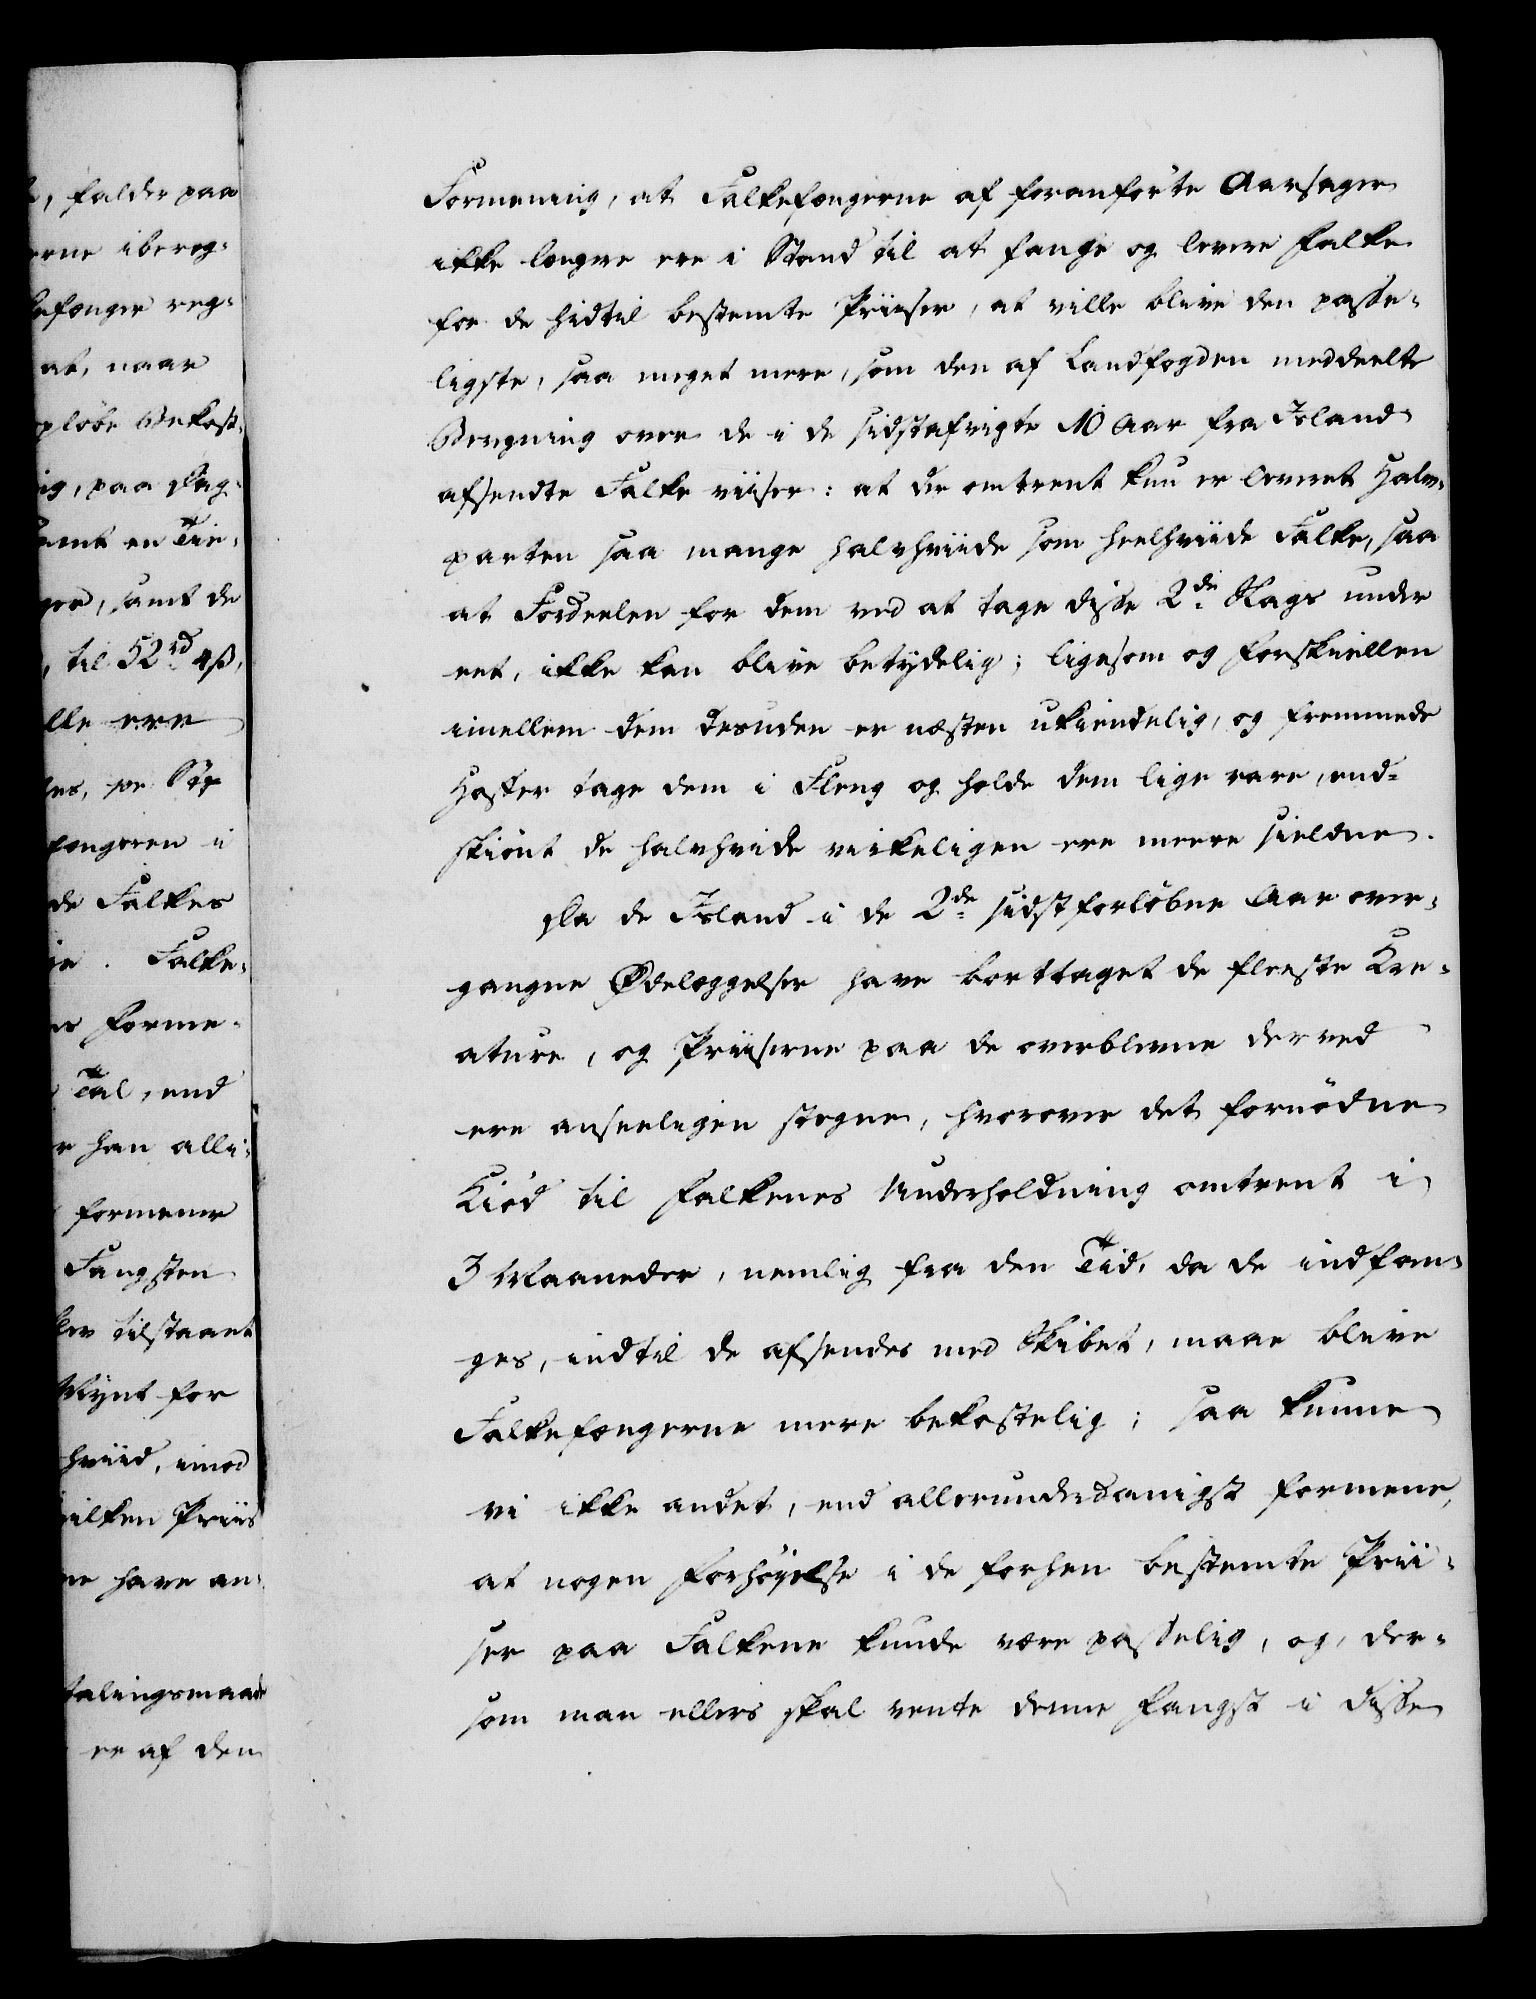 falder paa
erne ibereg-
fænger reg-
at, naar
pløbe Bekost-
ig, paa Fag-
amt en Tie-
ger, samt de
, til 52 rd 4ß,
lle ere
fængeren i
de Falkes
Falke-
forme-
Tal, end
r han alli-
formener
Fangsten
blev tilstaaet
Mynt for
hviid, imod
hvilken Priis
ne have an-
talingsmaade
er af den
Formening, at Falkefængerne af foranførte Aarsager
ikke længere ere i Stand til at fange og levere Falke
for de hidtil bestemte Priiser, at ville blive den passe-
ligste, saa meget mere, som den af Landfogden meddeelte
Beregning over de i de sidstafvigte 10 Aar fra Island
afsendte Falke viiser: at der omtrent kun er leveret Halv-
parten saa mange halvhviide som heelhviide Falke, saa
at Fordeelen for dem ved at tage disse 2de Slags under
eet, ikke kan blive betydelig; ligesom og Forskiellen
imellem dem desuden er næsten ukiendelig, og fremmede
Hoffer tage dem i Fleng og holde dem lige rare, end-
skiønt de halvhvide virkeligen ere meere sieldne.
Da de Island i de 2de sidstforløbne Aar over-
gangne Ødelæggelser have borttaget de fleeste Kre-
ature, og Priiserne paa de overblevne derved
ere anseeligen stegne, hvorover det fornødne
Kiød til Falkenes Underholdning omtrent i
3 Maaneder, nemlig fra den Tid, da de indfan-
ges, indtil de afsendes med Skibet, maae blive
Falkefængerne mere bekostelig; saa kunne
vi ikke andet, end allerunderdanigst formene,
at nogen Forhøyelse i de forhen bestemte Prii-
ser paa Falkene kunde være passelig, og, der-
som man ellers skal vente denne Fangst i disse